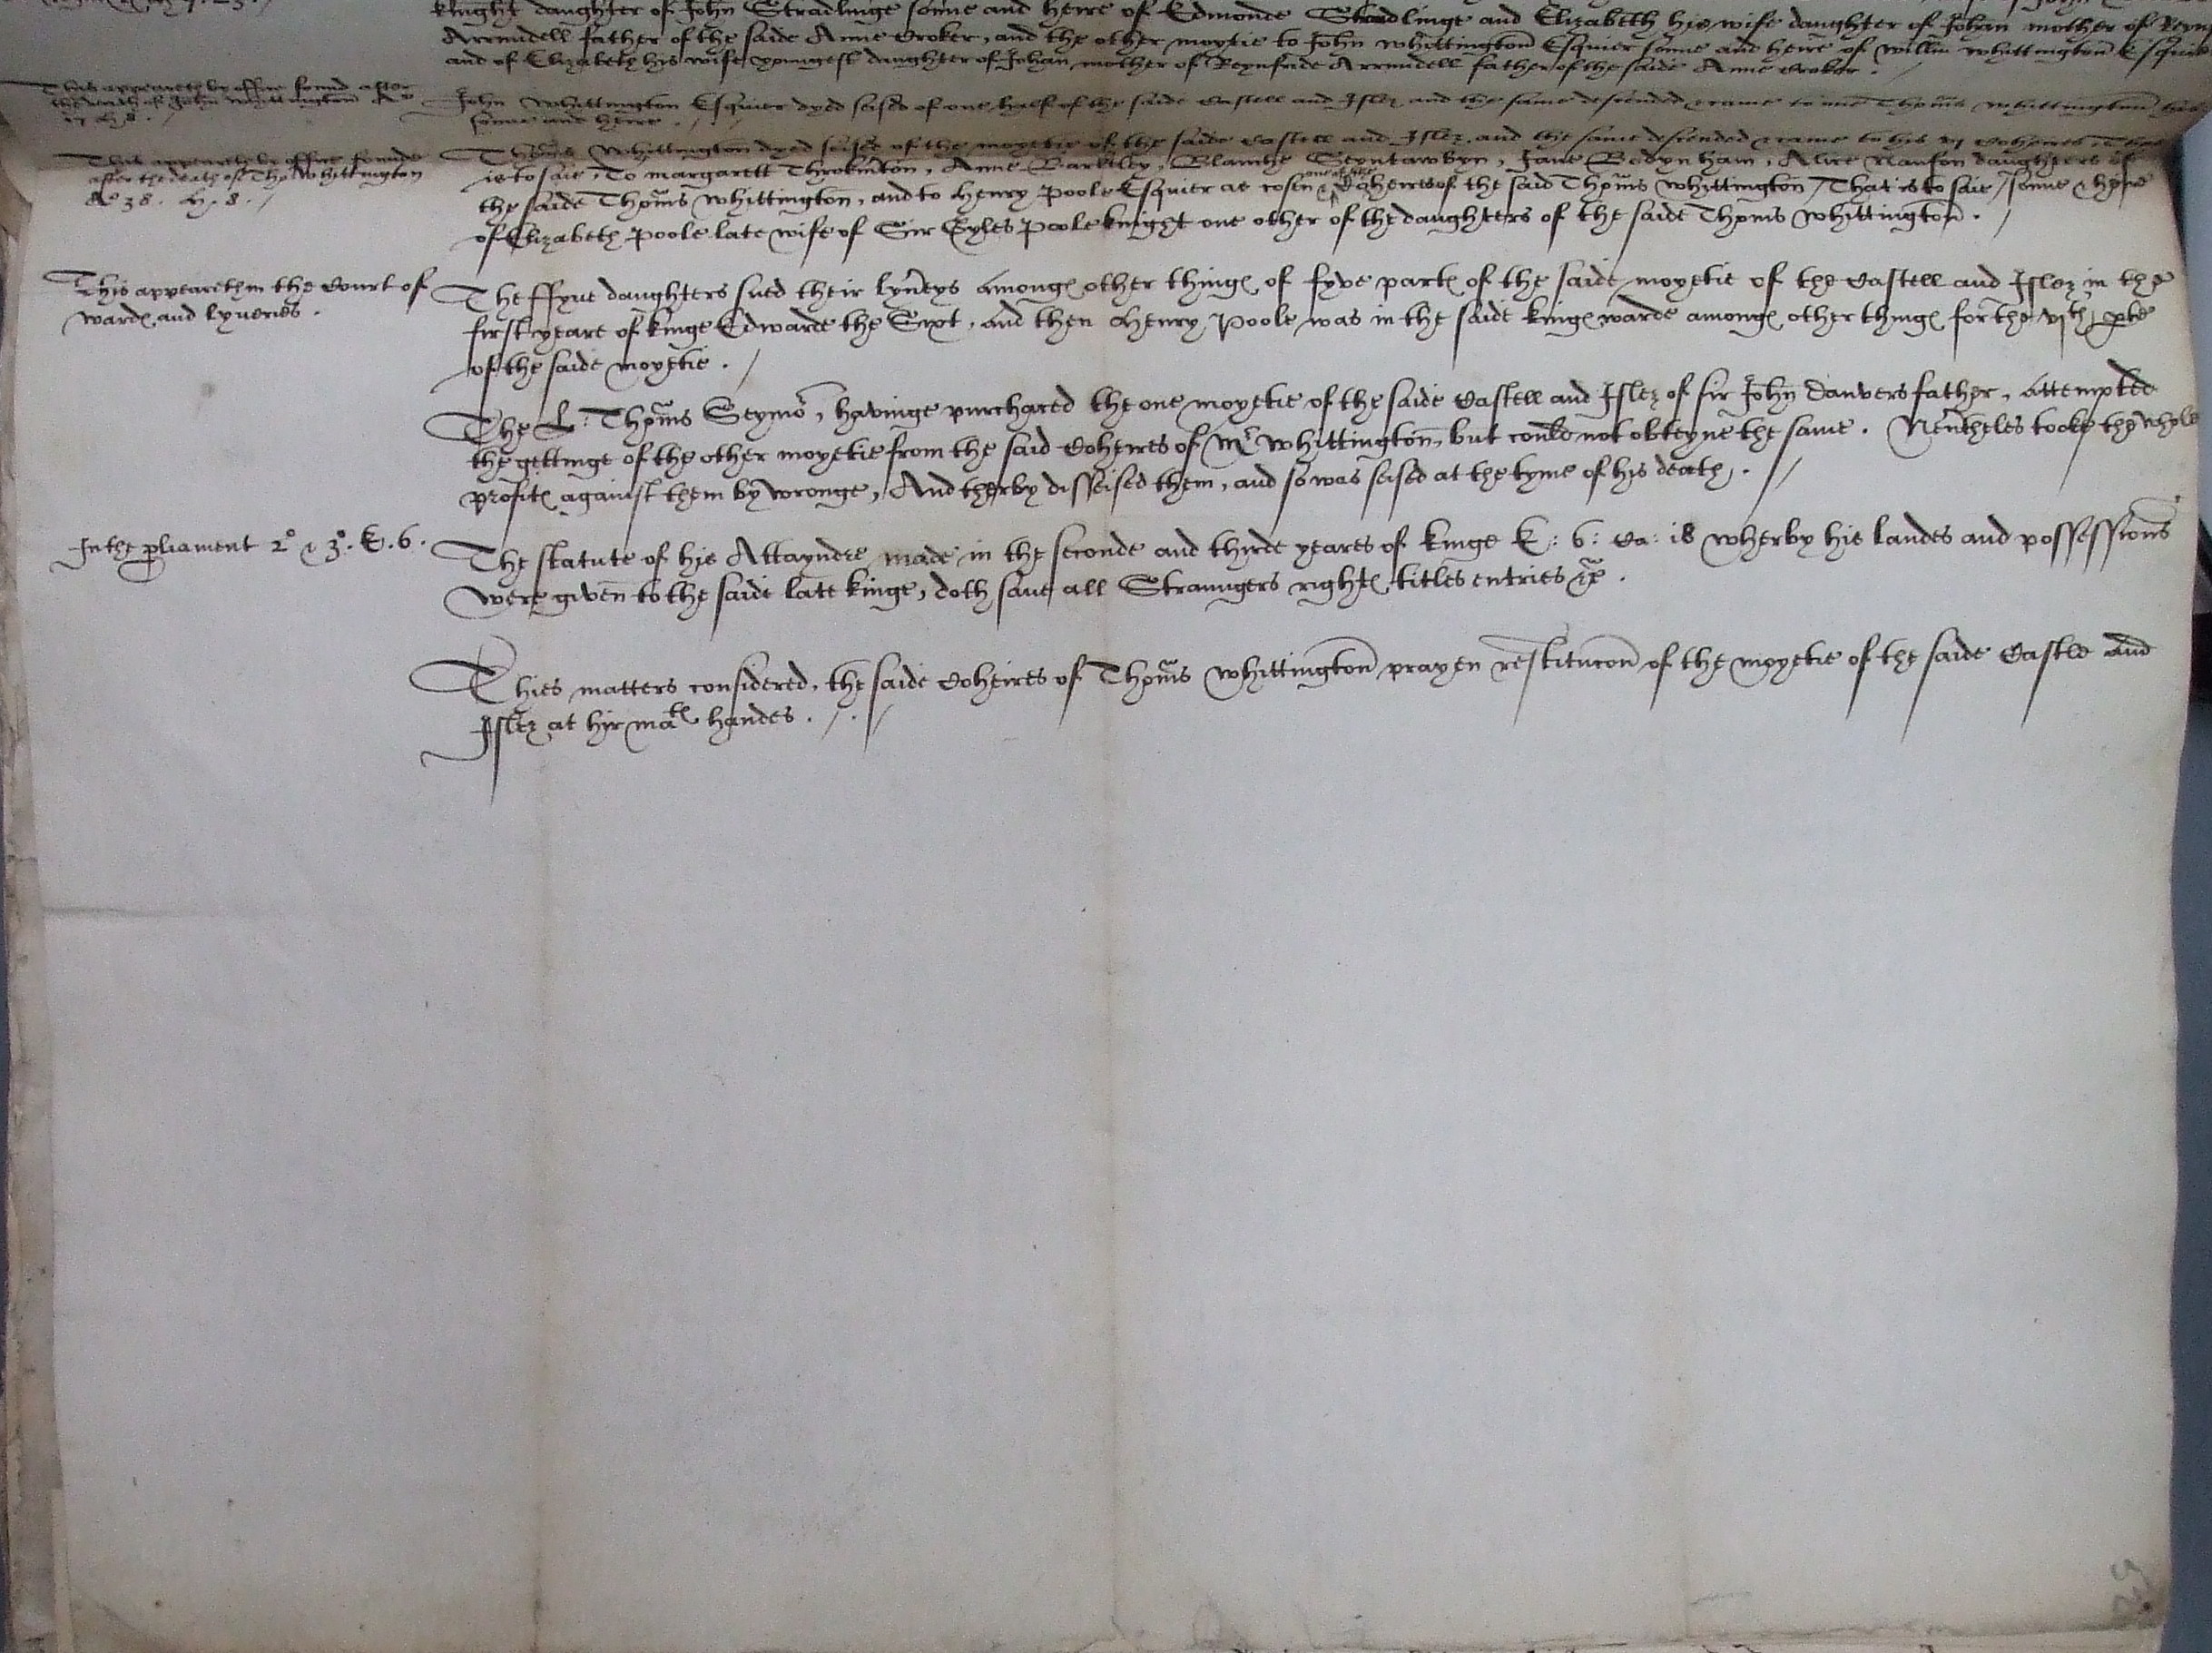 knight daughter of John Stradlinge sonne and heire of Edmonde Stradlinge and Elizabeth his wife daughter of Johan mother of
Arrundell father of the saide Anne Croker, and the other moytie to John Whittington Esquier sonne and heire of Willm Whittington Esquier
and of Elizabeth his wife yonngest daughter of Johan mother of Reynfride Arrundell father of the saide Anne Croker.
This appeareth by office found after
the death of John Whittington Ao
17 H. 8.
John Whittington Esquier dyed seised of one half of the saide Castell and Islez and the same descended & came to one Thoms Whittington his
sonne and heire.
This appeareth by office founde
after the death of Tho: Whittington
Ao 38. H. 8.
Thoms Whittington dyed seised of the moyetie of the saide Castell and Islez, and the same descended & came to his vj Coheires, That
is to saie, To Margarett Throkmton, Anne Barkley, Blanche Seyntawbyn, Jane Bodynham, Alice daughters of
the saide Thoms Whittington, and to Henry Poole Esquier as cosen & one of the Coheires of the said Thoms Whittington / That is to saie / sonne & heire
of Elizabeth Poole late wife of Sir Gyles Poole knight one other of the daughters of the saide Thoms Whittington.
This appeareth in the Court of
wardes and lyueries.
The ffyue daughters sued their lyu'eys amonges other thinges of fyve partes of the saide moyetie of the Castell and Islez in the
first yeare of kinge Edwarde the Sixt, and then Henry Poole was in the saide kinges warde amonges other thinges for the vjth pte
of the saide moyetie.
The L: Thoms Seymor, havinge purchased the one moyetie of the saide Castell and Islez of sir John Danvers father, Attempted
the gettinge of the other moyetie from the said Coheires of Mr Whittington, but could not obteyne the same. Neu'theles tooke the whole
profites against them by wronge, And therby disseised them, and so was seised at the tyme of his death.
In the pliament 2o & 3o. E. 6.
The statute of his Attayndre made in the seconde and thirde yeares of kinge E: 6: Ca: 18 wherby his landes and possessions
were given to the saide late kinge, doth saue all Straungers rightes titles entries &c.
Thies matters considered, the saide Coheires of Thoms Whittington prayen restitucon of the moyetie of the saide Castle and
Islez at hir mates handes.